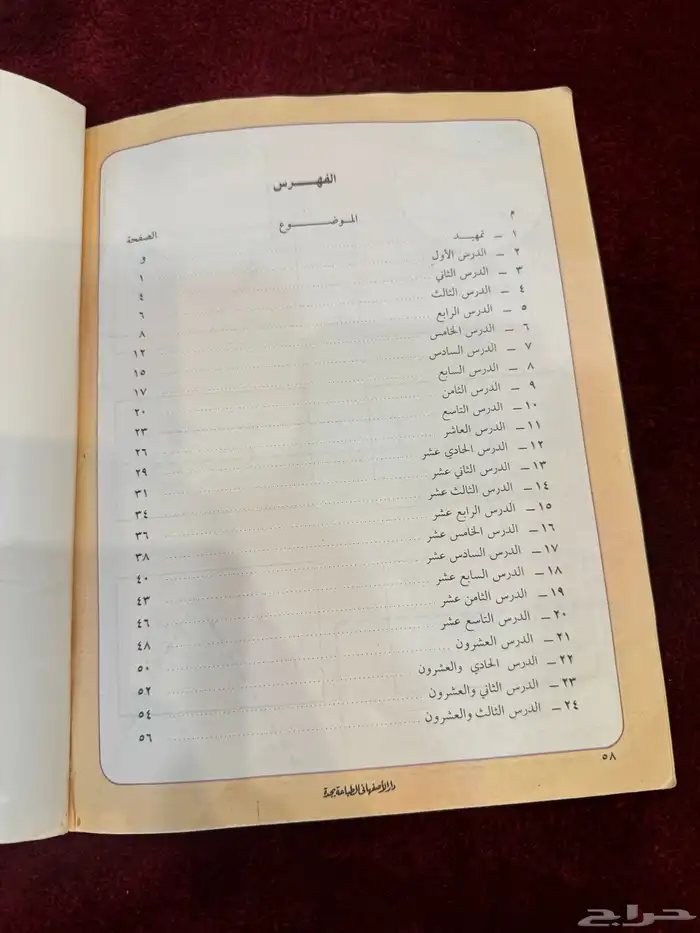 الفهــرس
م الموضــوع الصفحة
١ ـ تمهيـد و
٢ ـ الدرس الأول ١
٣ ـ الدرس الثاني ٤
٤ ـ الدرس الثالث ٦
٥ ـ الدرس الرابع ٨
٦ ـ الدرس الخامس ١٢
٧ ـ الدرس السادس ١٥
٨ ـ الدرس السابع ١٧
٩ ـ الدرس الثامن ٢٠
١٠ـ الدرس التاسع ٢٣
١١ـ الدرس العاشر ٢٦
١٢ـ الدرس الحادي عشر ٢٩
١٣ـ الدرس الثاني عشر ٣١
١٤ـ الدرس الثالث عشر ٣٤
١٥ـ الدرس الرابع عشر ٣٦
١٦ـ الدرس الخامس عشر ٣٨
١٧ـ الدرس السادس عشر ٤٠
١٨ـ الدرس السابع عشر ٤٣
١٩ـ الدرس الثامن عشر ٤٦
٢٠ـ الدرس التاسع عشر ٤٨
٢١ـ الدرس العشرون ٥٠
٢٢ـ الدرس الحادي والعشرون ٥٢
٢٣ـ الدرس الثاني والعشرون ٥٤
٢٤ـ الدرس الثالث والعشرون ٥٦
٥٨
دار الأصفهاني للطباعة بجدة
حراج